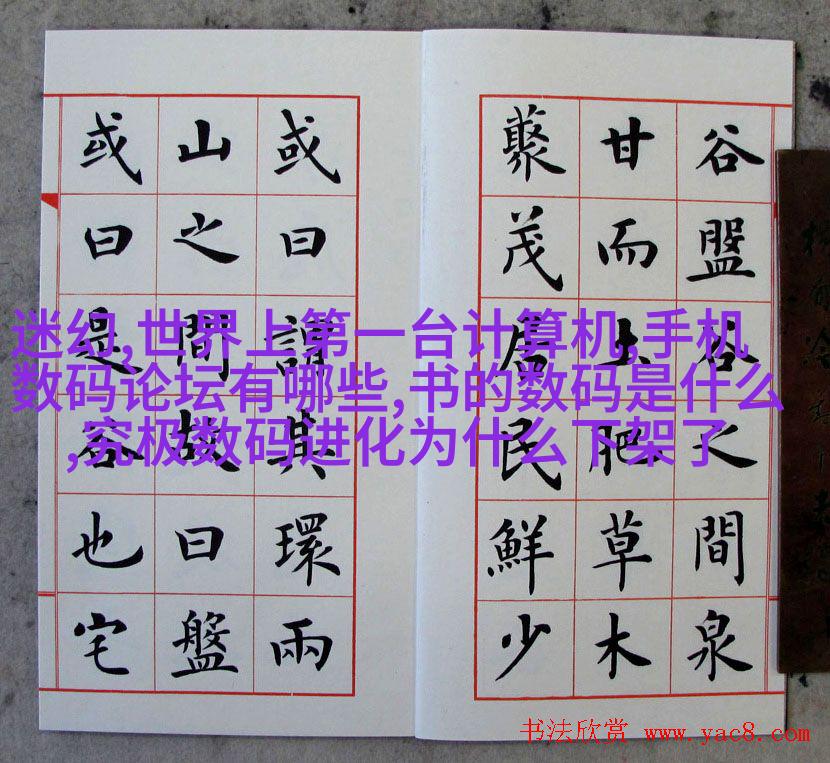 迷幻,世界上第一台计算机,手机
数码论坛有哪些,书的数码是什么
,究极数码进化为什么下架了
谷盤谷之間泉
甘而土肥草木
藂茂居民鮮少
或曰謂其環兩
山之間故曰盤
或曰是谷也宅
书法欣赏 www.yac8.com